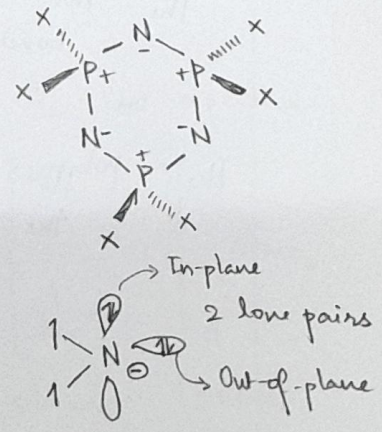 X N X
X P+ - +P X
N- -N
+
P
X X
In-plane
2 lone pairs
1 N ⊖
1 Out-of-plane